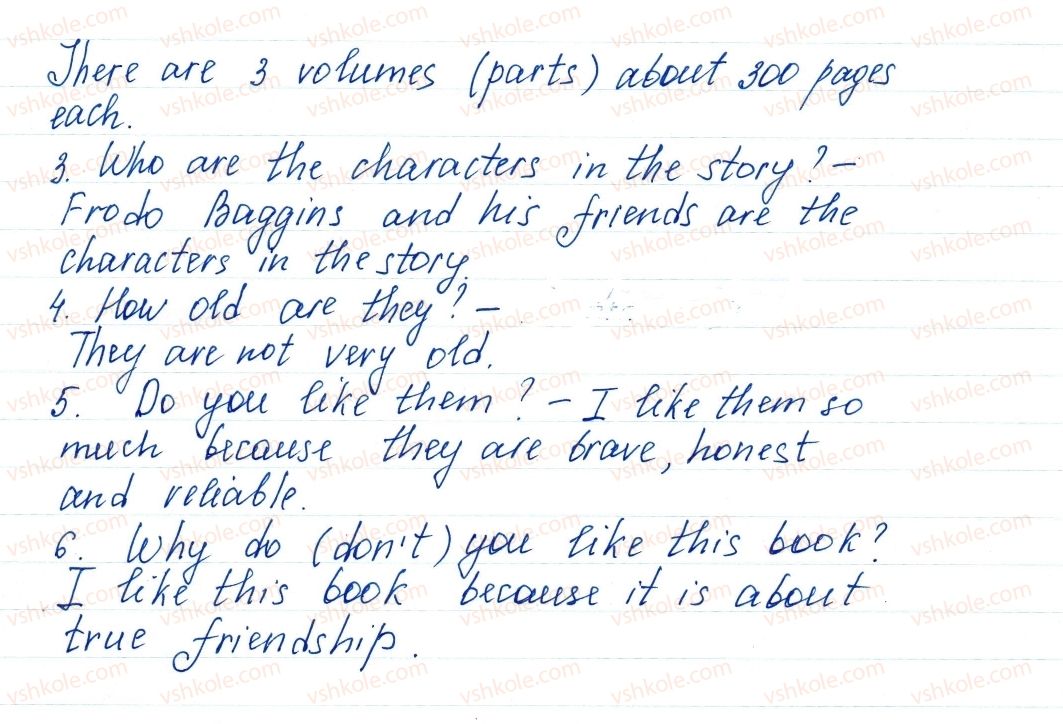 There are 3 volumes (parts) about 300 pages
each.
3. Who are the characters in the story? –
Frodo Baggins and his friends are the
characters in the story.
4. How old are they? –
They are not very old.
5. Do you like them? – I like them so
much because they are brave, honest
and reliable.
6. Why do (don't) you like this book?
I like this book because it is about
true friendship.